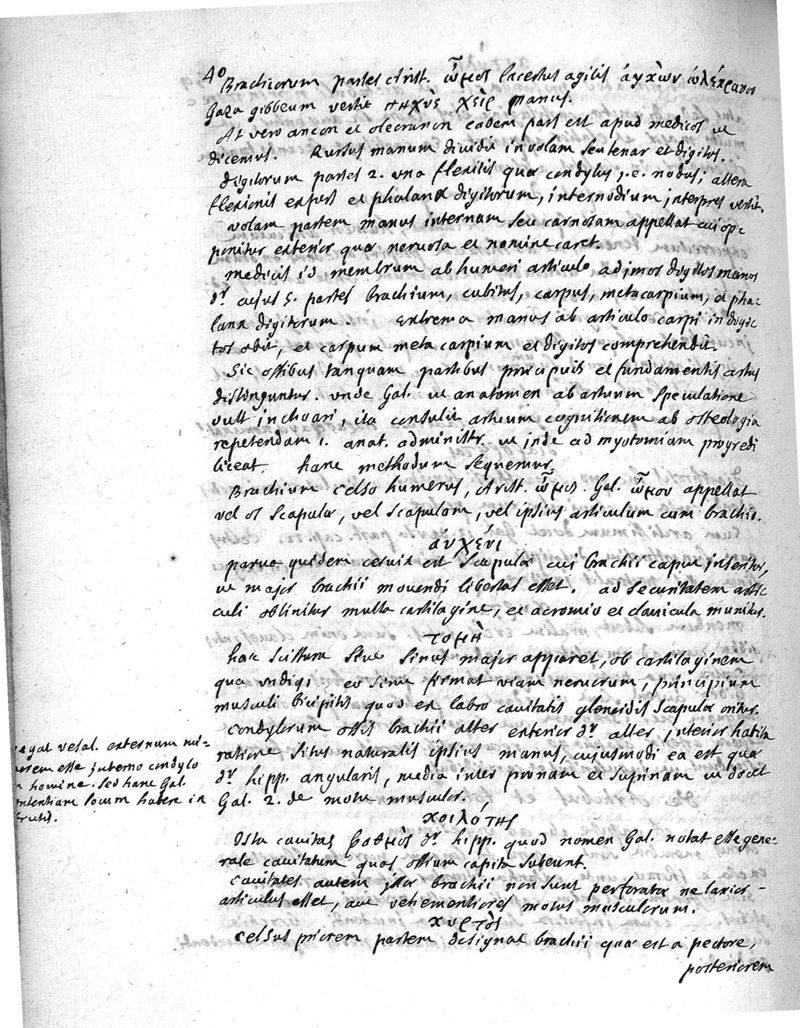 40
Brachiorum partes Arist. ὦμος lacertus agilis ἀγχὼν ὠλέκρανον
Gaza gibbeum vertit πηχὺς χεὶρ manus.
At vero ancon et olecranon eadem pars est apud medicos ut
dicemus. Rursus manum dividit in volam seu tenar et digitos.
digitorum partes 2. una flexilis quæ condylus, i.e. nodus; altera
flexionis expers et phalanx digitorum, internodium interpres vertit.
volam partem manus internam seu carnosam appellat cui op-
ponitur exterior quæ nervosa et nomine caret.
medicis id membrum ab humeri articulo ad imos digitos manus
dr cujus 5. partes brachium, cubitus, carpus, metacarpium, et pha-
lanx digitorum. Extrema manus ab articulo carpi in digi-
tos obit, et carpum metacarpium et digitos comprehendit.
Sic ossibus tanquam partibus præcipuis et fundamentis artus
distinguntur. unde Gal. ut anatomen ab artuum speculatione
vult inchoari, ita consulit artuum cognitionem ab osteologia
repetendam 1. anat. administr. ut inde ad myotomiam progredi
liceat. hanc methodum sequemur.
Brachium Celso humerus, Arist. ὦμος. Gal. ὦμον appellat
vel os scapulæ, vel scapulam, vel ipsius articulum cum brachio.
αὐχένι
parva quidem cervix est scapulæ cui brachii caput inseritur,
ut major brachii movendi libertas esset. ad securitatem arti-
culi oblinitur multa cartilagine, et acromio et clavicula munitur.
τομὴ
hæc scissura sive sinus major apparet, ob cartilaginem
qua undiq; eo sinu firmat viam nervorum, principium
musculi bicipitis quos ex labro cavitatis glenoidis scapulæ oritur.
condylorum ossis brachii alter exterior dr alter interior habita
ratione situs naturalis ipsius manus, cujusmodi ea est quæ
dr hipp. angularis, media inter pronam et supinam ut docet
Gal. 2. de motu musculor.
negat vesal. externum mi-
norem esse interno condylo
in homine. sed hanc Gal.
sententiam locum habere in
brutis.
κοιλότης
Ista cavitas βαθμὸς dr hipp. quod nomen Gal. notat esse gene-
rale cavitatum quas ossium capita subeunt.
Cavitates autem istæ brachii non sunt perforatæ ne laxior
articulus esset, aut vehementiores motus musculorum.
κυρτὸς
Celsus priorem partem designat brachii quæ est a pectore,
posteriorem